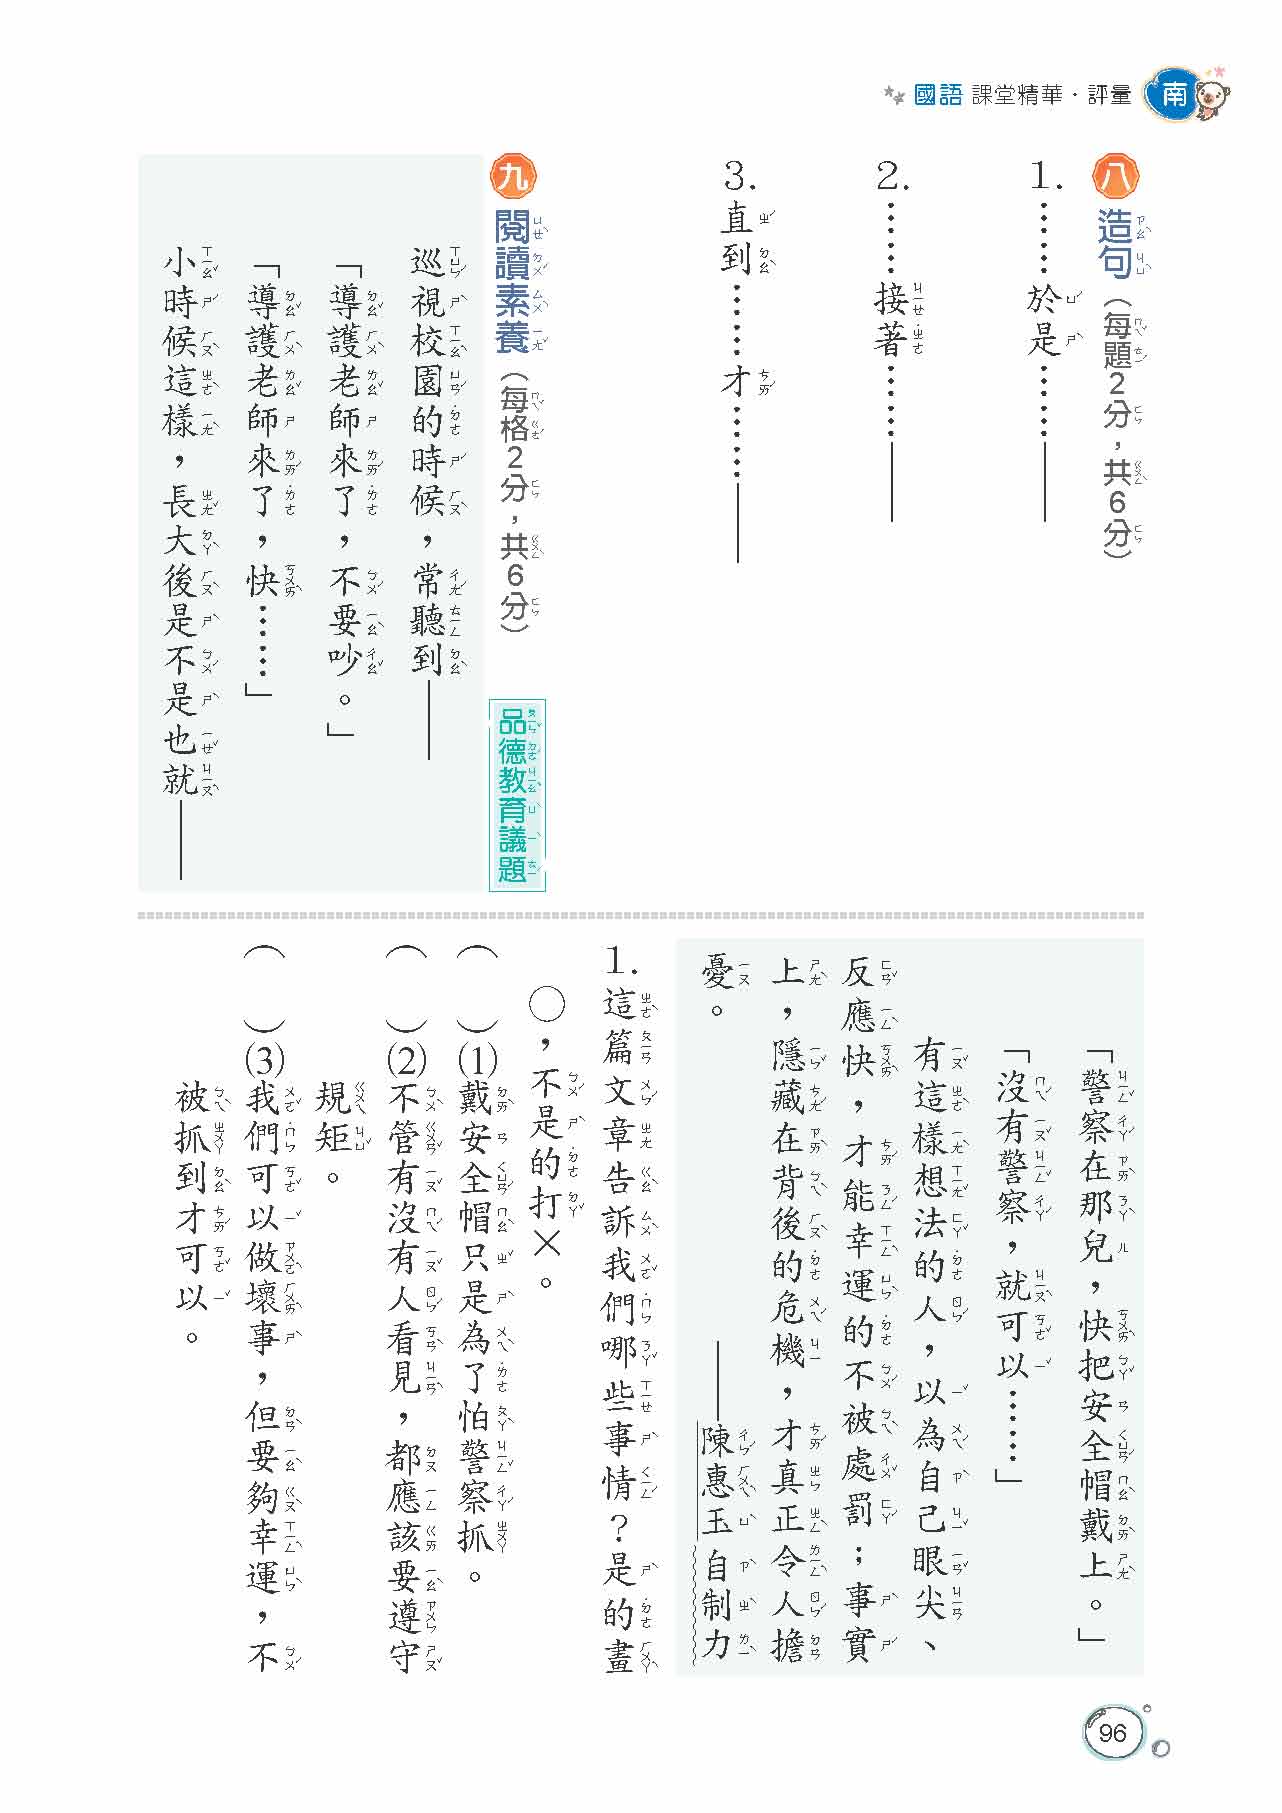 國語 課堂精華・評量 南
八 造句（每題2分，共6分）
1. ……於是……——
2. ……接著……——
3. 直到……才……——
九 閱讀素養（每格2分，共6分）
品德教育議題
巡視校園的時候，常聽到——
「導護老師來了，不要吵。」
「導護老師來了，快……」
小時候這樣，長大後是不是也就——
「警察在那兒，快把安全帽戴上。」
「沒有警察，就可以……」
有這樣想法的人，以為自己眼尖、
反應快，才能幸運的不被處罰；事實
上，隱藏在背後的危機，才真正令人擔
憂。
——陳惠玉 自制力
1. 這篇文章告訴我們哪些事情？是的畫
○，不是的打×。
（ ）⑴戴安全帽只是為了怕警察抓。
（ ）⑵不管有沒有人看見，都應該要遵守
規矩。
（ ）⑶我們可以做壞事，但要夠幸運，不
被抓到才可以。
96